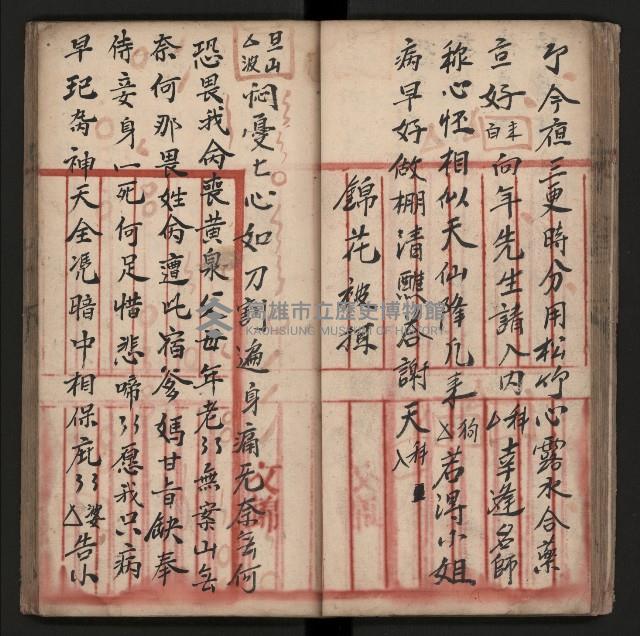 卩今夜三更時分用松竹心露水合藥
豆好百耒向年先生請入内厶科幸逢名師
称心怪相似天仙降凡来厶狗若得小姐
病早好做棚清醮答謝天科
錦花被擄
旦山厶波悶憂亡心如刀割遍身痛无奈
恐畏我命喪黄泉父母年老無
奈何那畏姓命遭此宿爹媽甘旨缺奉
侍妾身一死何足惜悲啼應我只病
早祀為神天全憑暗中相保庇厶婆告小
高雄市立歷史博物館
KAOHSIUNG MUSEUM OF HISTORY